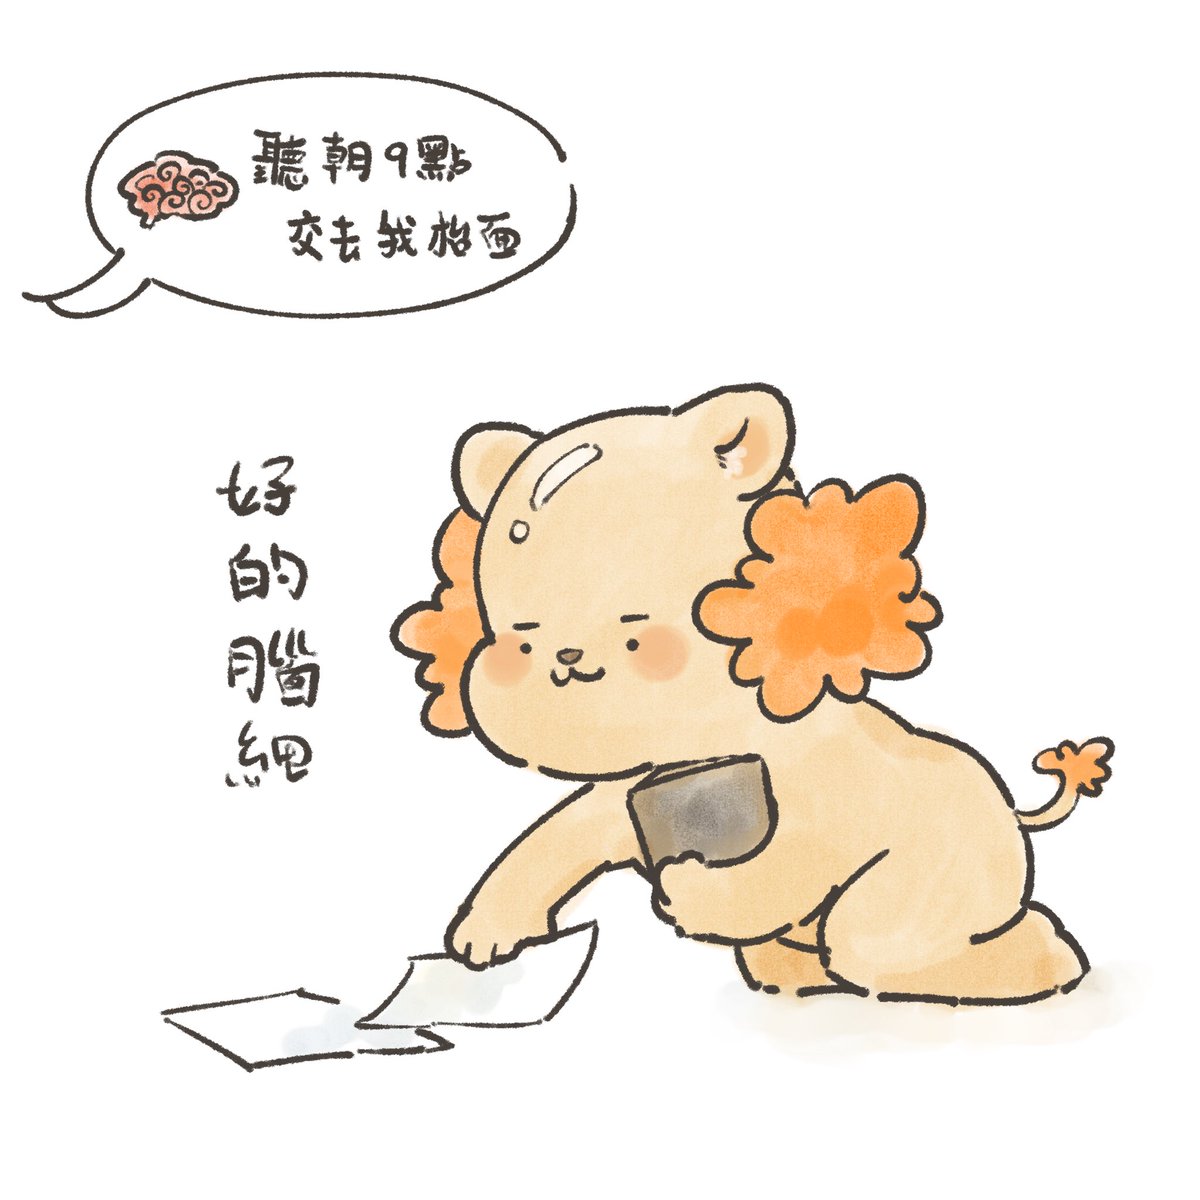 聽朝9點
交去我枱面
好的腦細